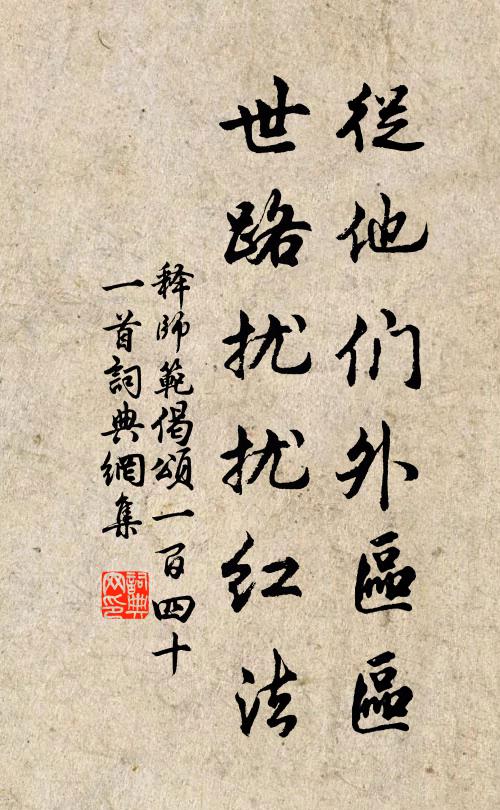 從他们外區區
世路扰扰红法
释師範偈頌一百四十
一首詞典網集
詞典
网印